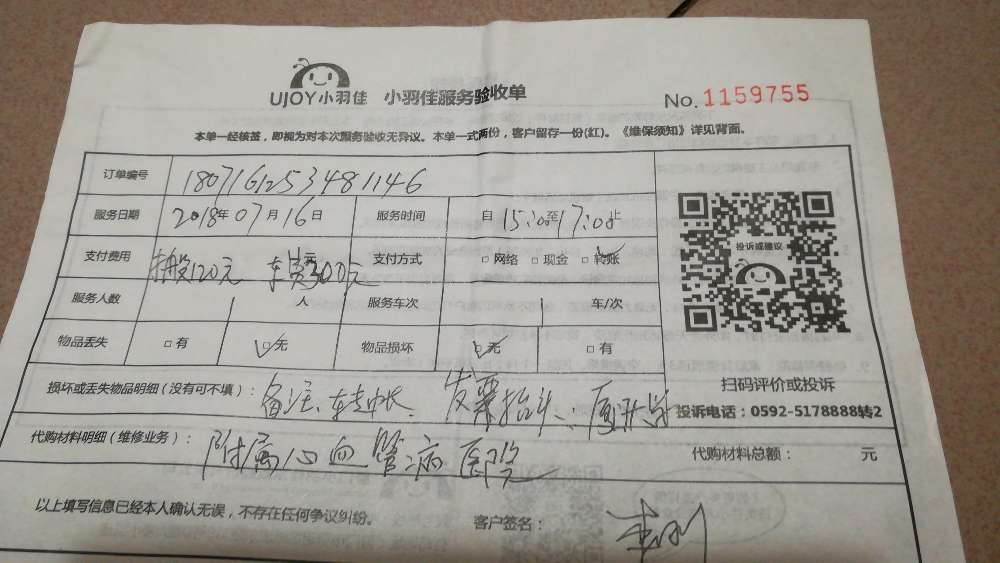 UJOY小羽佳 小羽佳服务验收单 No. 1159755
本单一经核签，即视为对本次服务验收无异议。本单一式两份，客户留存一份(红)。《维保须知》详见背面。
订单编号 1807161253481146
服务日期 2018年07月16日 服务时间 自15:00至17:00止
投诉或建议
支付费用 搬120元 车费300元 支付方式 □网络 □现金 □转账
服务人数 1人 服务车次 1车/次
物品丢失 □有 □无 物品损坏 □无 □有
扫码评价或投诉
损坏或丢失物品明细（没有可不填）： 备注、转帐、发票抬头：厦门大学
投诉电话：0592-5178888转2
代购材料明细（维修业务）： 附属心血管病医院 代购材料总额： 元
以上填写信息已经本人确认无误，不存在任何争议纠纷。 客户签名：